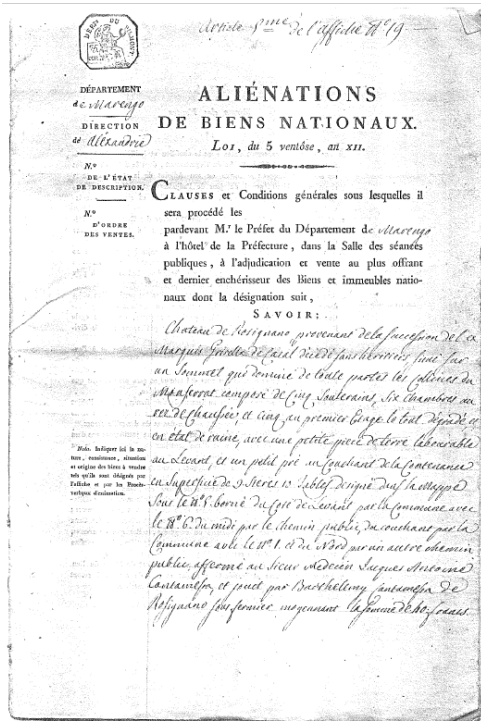 Article 5.me de l'affiche N.o 19
DÉPARTEMENT
de Marengo
DIRECTION
de Alexandrie
N.o
DE L'ÉTAT
DE DESCRIPTION.
N.o
D'ORDRE
DES VENTES.
ALIÉNATIONS
DE BIENS NATIONAUX.
LOI, du 5 ventôse, an XII.
CLAUSES et Conditions générales sous lesquelles il
sera procédé les
pardevant M.r le Préfet du Département de Marengo
à l'hôtel de la Préfecture, dans la Salle des séances
publiques, à l'adjudication et vente au plus offrant
et dernier enchérisseur des Biens et immeubles natio-
naux dont la désignation suit,
SAVOIR:
Chateau de Rosignano provenant de la succession de l'ex
Marquis de Casal décédé sans héritiers situé sur
un Sommet qui domine de toute partes les Colines du
Monferrat composé de Cinq Souterains, Six chambres au
rez de chaussée, et Cinq au premier étage le tout dégradé et
en état de ruine, avec une petite piece de terre labourable
au Levant, et un petit pré au Couchant de la Contenance
en Superficie de 10 tables designé dans la mappe
Sous le N.o 5. borné du Coté de Levant par la Commune avec
le N.o 6. du midi par le chemin public, du couchant par la
Commune avec le N.o 1. et du Nord par un autre chemin
public, affermé au Sieur Medecin Jacques Antoine
Cantamessa, et jouit par Barthelemy Cantamessa de
Rosignano sous fermier moyennant la somme de 40 francs
Nota. Indiquer ici la na-
ture, consistance, situation
et origine des biens à vendre
tels qu'ils sont désignés par
l'affiche et par les Procès-
verbaux d'estimation.